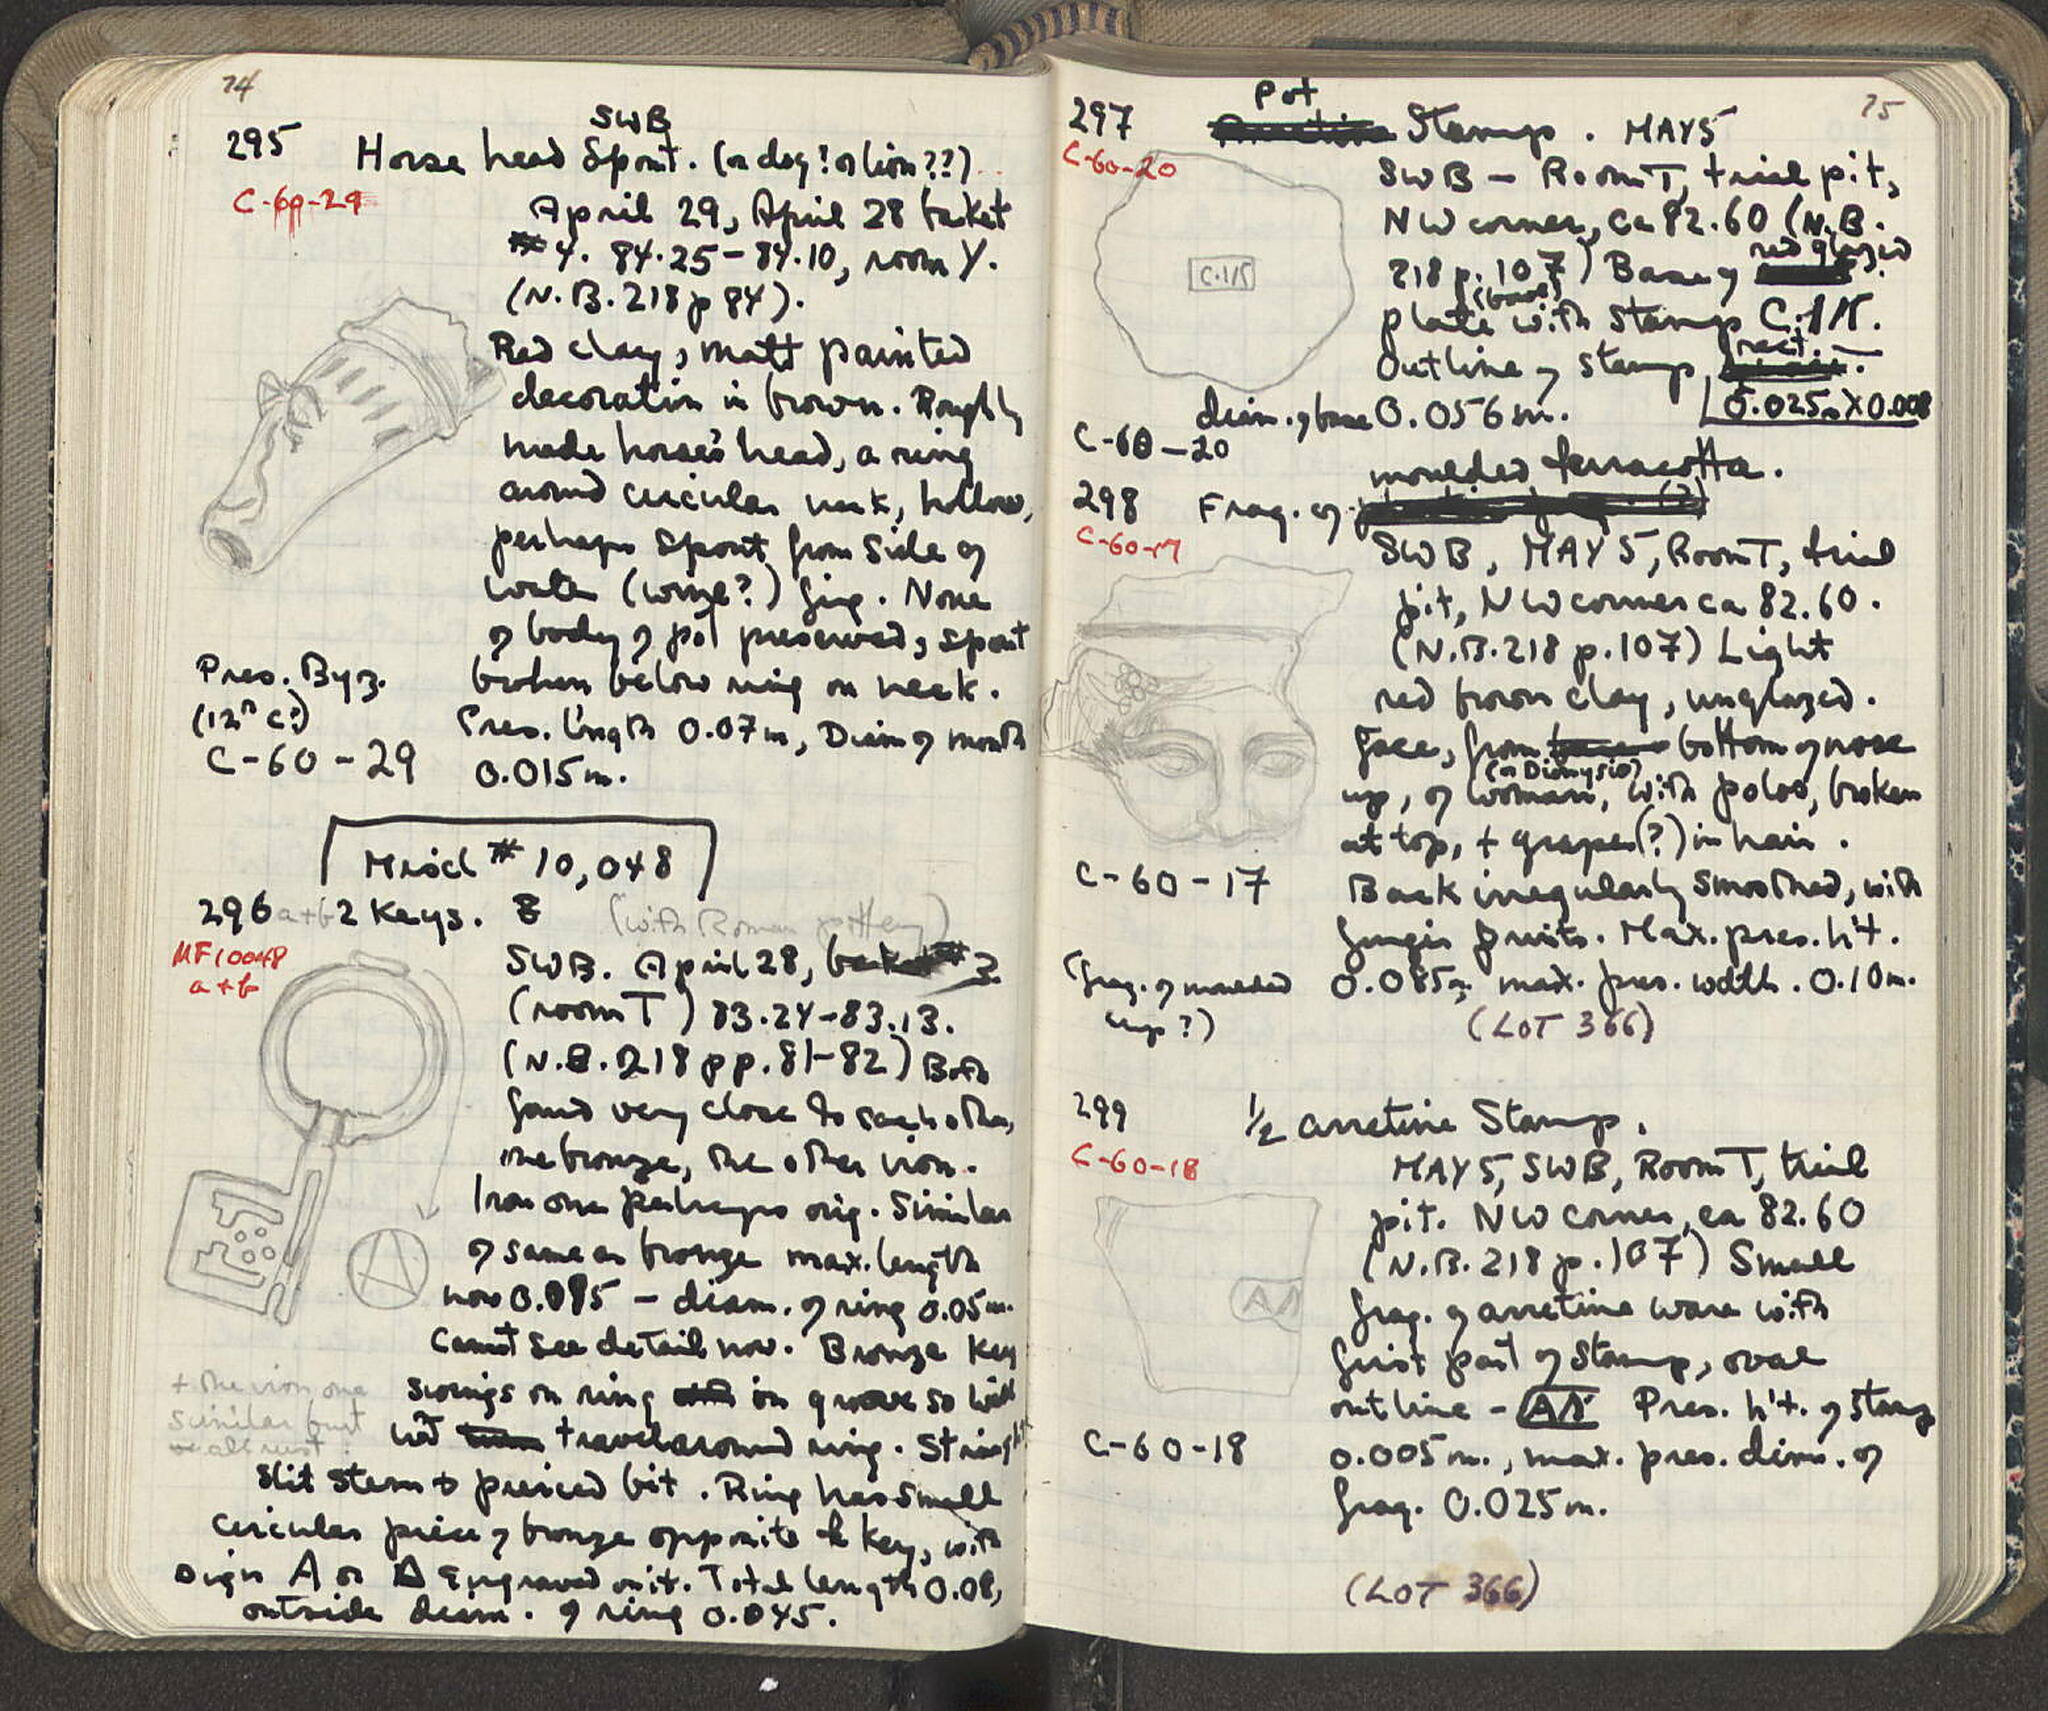 74
295
SWB
Horse head Spout. (or dog? or lion??)
C-60-29
April 29, April 28 basket
#4. 84.25-84.10, room Y.
(N.B. 218 p 84).
Red clay, matt painted
decoration in brown. Roughly
made horse's head, a ring
around circular neck, hollow,
perhaps spout from side of
water (wine?) jug. None
of body of pot preserved, spout
broken below ring on neck.
Pres. Byz.
(12th C?)
C-60-29
Pres. length 0.07m, Diam of mouth
0.015m.
Miscl # 10,048
296 a+b 2 Keys. (with Roman pottery)
MF10048
a+b
SWB. April 28, basket #3
(room T) 83.24-83.13.
(N.B. 218 pp. 81-82) Both
found very close to each other,
one bronze, the other iron.
Iron one perhaps orig. similar
of same as bronze max. length
now 0.085 - diam. of ring 0.05m.
A
Cannot see detail now. Bronze Key
swings on ring in groove so will
not travel around ring. Straight
+ the iron one
similar but
all rust.
slit stem + pierced bit. Ring has small
circular piece of bronze opposite to Key, with
sign A or Δ engraved on it. Total length 0.08,
outside diam. of ring 0.045.
75
297
Pot
Arretine Stamp. MAY 5
C-60-20
SWB - Room T, trial pit,
NW corner, ca 82.60 (N.B.
218 p. 107) Base of red glazed
plate (bowl?) with stamp
C.1/1
Outline of stamp, rect.
0.025m X 0.008
diam. of base 0.056m.
C-60-20
298
Frag. of moulded terracotta.
C-60-17
SWB, MAY 5, Room T, trial
pit, NW corner ca 82.60.
(N.B. 218 p. 107) Light
red brown clay, unglazed.
Face, from bottom of nose
up, of woman (or Dionysis), with polos, broken
at top, + grapes(?) in hair.
C-60-17
Back irregularly smoothed, with
finger prints. Max. pres. h't.
(frag. of moulded
cup?)
0.085m, max. pres. width. 0.10m.
(LOT 366)
299
1/2 arretine Stamp.
C-60-18
MAY 5, SWB, Room T, trial
pit. NW corner, ca 82.60
(N.B. 218 p. 107) Small
frag. of arretine ware with
first part of stamp, oval
outline - Pres. h't. of stamp
C-60-18
0.005m., max. pres. dim. of
frag. 0.025m.
(LOT 366)